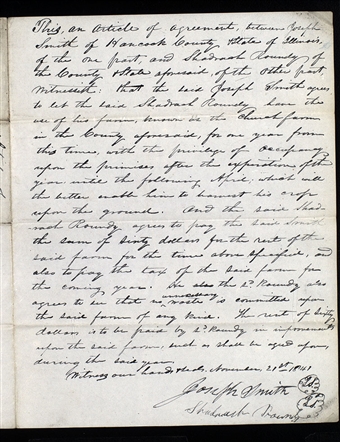 This, an article of agreement, between Joseph
Smith of Hancock County, State of Illinois,
of the one part, and Shadrach Roundy of
the County & State aforesaid, of the other part,
Witnesseth: that the said Joseph Smith agrees
to let the said Shadrach Roundy have the
use of his farm, known as the Church farm
in the County aforesaid, for one year from
this time, with the privilege of occupancy
upon the premises after the expiration of the
year until the following April, which will
the better enable him to harvest his crop
upon the ground. And the said Shad-
rach Roundy agrees to pay the said Smith
the sum of Sixty dollars for the rent of the
said farm for the time above specified, and
also to pay the tax of the said farm for
the coming year. He also the sd. Roundy also
agrees to see that no unnecessary waste is committed upon
the said farm of any kind. The rent of sixty
dollars is to be paid by sd. Roundy in improvements
upon the said farm, such as shall be agreed upon,
during the said year.
Witness our hands & seals, November 21st 1841
Joseph Smith
Shadrach Roundy